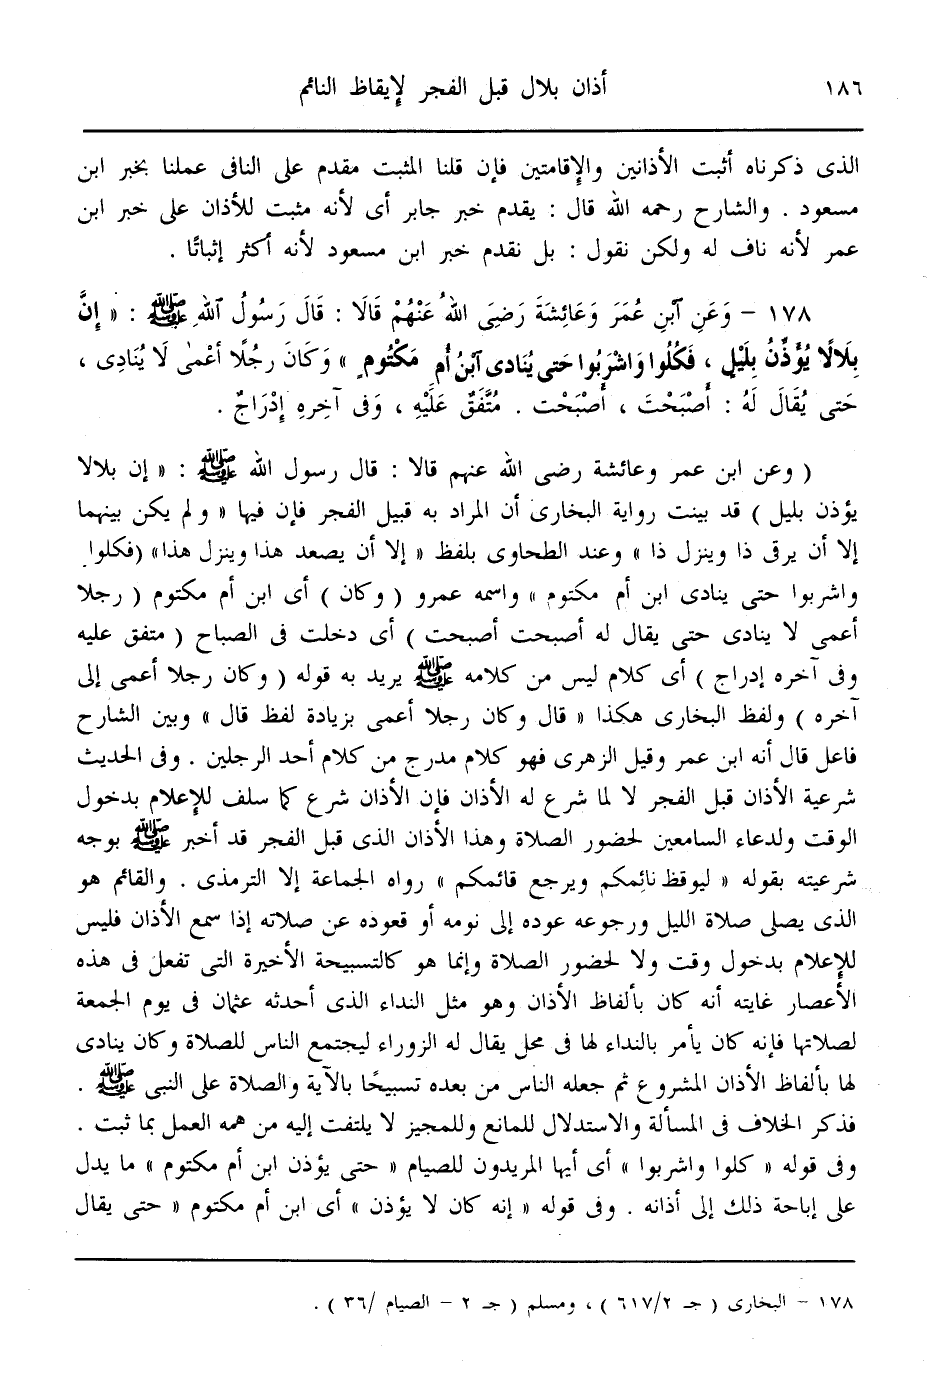 ١٨٦ أذان بلال قبل الفجر لإيقاظ النائم
الذى ذكرناه أثبت الأذانين والإقامتين فإن قلنا المثبت مقدم على النافى عملنا بخبر ابن
مسعود . والشارح رحمه الله قال : يقدم خبر جابر أى لأنه مثبت للأذان على خبر ابن
عمر لأنه ناف له ولكن نقول : بل نقدم خبر ابن مسعود لأنه أكثر إثباتًا .
١٧٨ – وَعَنِ ٱبْنِ عُمَرَ وَعَائِشَةَ رَضِىَ اللهُ عَنْهُمْ قَالَا : قَالَ رَسُولُ ٱللهِ ﷺ : « إِنَّ
بِلَالًا يُؤَذِّنُ بِلَيْلٍ ، فَكُلُوا وَاشْرَبُوا حَتى يُنَادى ٱبْنُ أُم مَكْتُومٍ » وَكَانَ رجُلًا أعْمىٰ لَا يُنَادِى ،
حَتى يُقَالَ لَهُ : أَصْبَحْتَ ، أَصْبَحْت . مُتَّفَقٌ عَلَيْهِ ، وَفى آخِرِهِ إِدْرَاجٌ .
( وعن ابن عمر وعائشة رضى الله عنهم قالا : قال رسول الله ﷺ : « إن بلالا
يؤذن بليل ) قد بينت رواية البخارى أن المراد به قبيل الفجر فإن فيها « ولم يكن بينهما
إلا أن يرقى ذا وينزل ذا » وعند الطحاوى بلفظ « إلا أن يصعد هذا وينزل هذا» (فكلوا
واشربوا حتى ينادى ابن أم مكتوم » واسمه عمرو ( وكان ) أى ابن أم مكتوم ( رجلا
أعمى لا ينادى حتى يقال له أصبحت أصبحت ) أى دخلت فى الصباح ( متفق عليه
وفى آخره إدراج ) أى كلام ليس من كلامه ﷺ يريد به قوله ( وكان رجلا أعمى إلى
آخره ) ولفظ البخارى هكذا « قال وكان رجلا أعمى بزيادة لفظ قال » وبين الشارح
فاعل قال أنه ابن عمر وقيل الزهرى فهو كلام مدرج من كلام أحد الرجلين . وفى الحديث
شرعية الأذان قبل الفجر لا لما شرع له الأذان فإن الأذان شرع كما سلف للإعلام بدخول
الوقت ولدعاء السامعين لحضور الصلاة وهذا الأذان الذى قبل الفجر قد أخبر ﷺ بوجه
شرعيته بقوله « ليوقظ نائمكم ويرجع قائمكم » رواه الجماعة إلا الترمذى . والقائم هو
الذى يصلى صلاة الليل ورجوعه عوده إلى نومه أو قعوده عن صلاته إذا سمع الأذان فليس
للإعلام بدخول وقت ولا لحضور الصلاة وإنما هو كالتسبيحة الأخيرة التى تفعل فى هذه
الأعصار غايته أنه كان بألفاظ الأذان وهو مثل النداء الذى أحدثه عثمان فى يوم الجمعة
لصلاتها فإنه كان يأمر بالنداء لها فى محل يقال له الزوراء ليجتمع الناس للصلاة وكان ينادى
لها بألفاظ الأذان المشروع ثم جعله الناس من بعده تسبيحًا بالآية والصلاة على النبى ﷺ .
فذكر الخلاف فى المسألة والاستدلال للمانع وللمجيز لا يلتفت إليه من همه العمل بما ثبت .
وفى قوله « كلوا واشربوا » أى أيها المريدون للصيام « حتى يؤذن ابن أم مكتوم » ما يدل
على إباحة ذلك إلى أذانه . وفى قوله « إنه كان لا يؤذن » أى ابن أم مكتوم « حتى يقال
١٧٨ – البخارى ( جـ ٦١٧/٢ ) ، ومسلم ( جـ ٢ – الصيام /٣٦ ) .